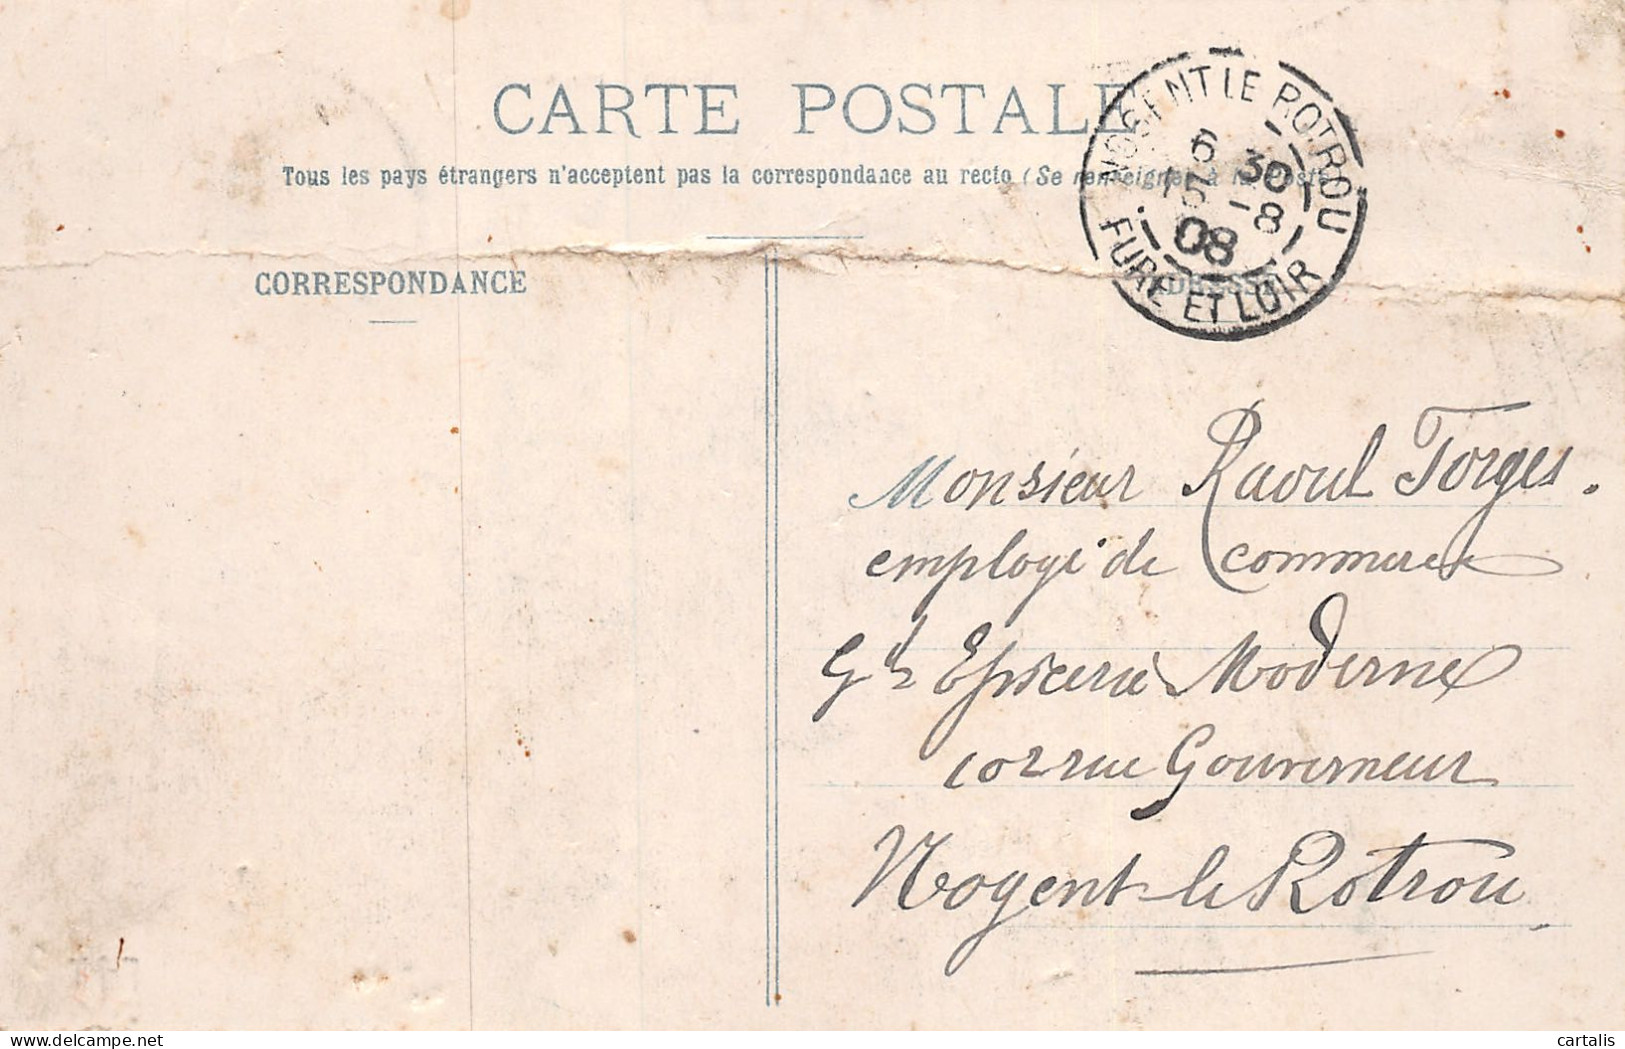 CARTE POSTALE
Tous les pays étrangers n'acceptent pas la correspondance au recto (Se renseigner à la Poste
NOGENT LE ROTROU
6 30
15 -8
08
EURE ET LOIR
CORRESPONDANCE
ADRESSE
Monsieur Raoul Forges.
employé de commerce
Gde Epicerie Moderne
rue Gouverneur
Nogent-le-Rotrou
cartalis